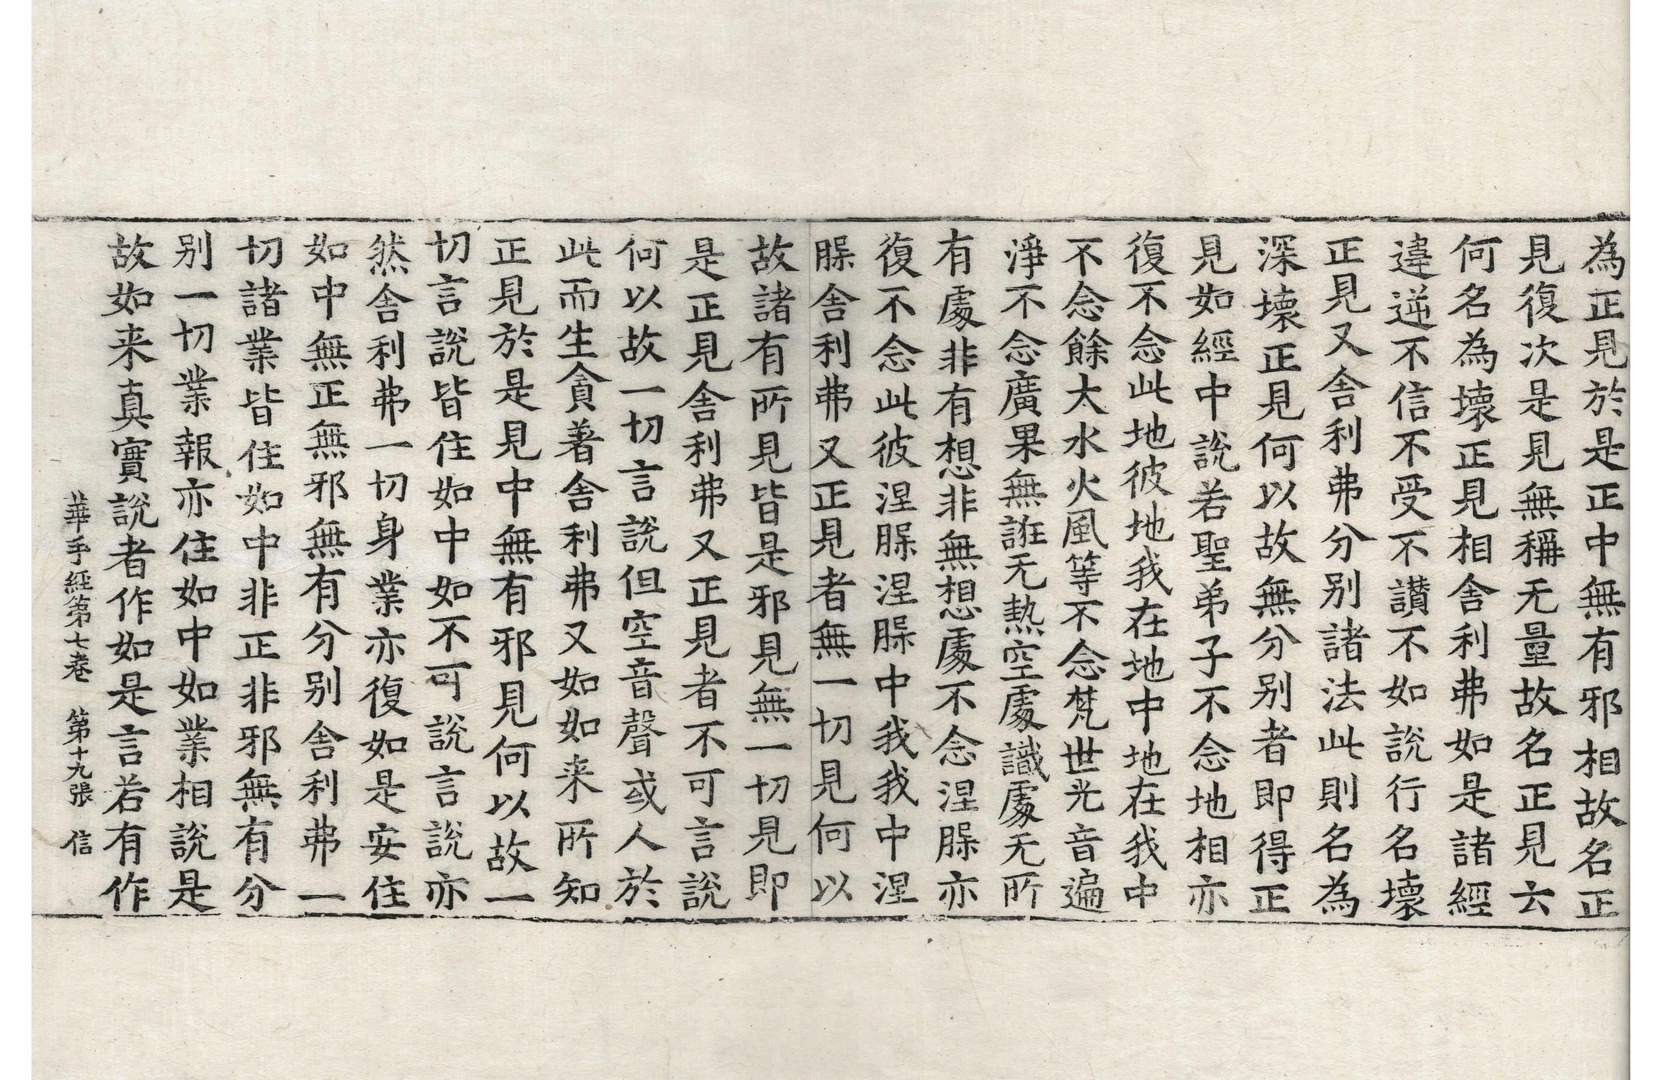 為正見於是正中無有邪相故名正
見復次是見無稱无量故名正見云
何名為壞正見相舍利弗如是諸經
違逆不信不受不讃不如說行名壞
正見又舍利弗分别諸法此則名為
深壞正見何以故無分别者即得正
見如經中說若聖弟子不念地相亦
復不念此地彼地我在地中地在我中
不念餘大水火風等不念梵世光音遍
淨不念廣果無誑无熱空處識處无所
有處非有想非無想處不念涅槃亦
復不念此彼涅槃涅槃中我我中涅
槃舍利弗又正見者無一切見何以
故諸有所見皆是邪見無一切見即
是正見舍利弗又正見者不可言說
何以故一切言說但空音聲或人於
此而生貪著舍利弗又如如来所知
正見於是見中無有邪見何以故一
切言說皆住如中如不可說言說亦
然舍利弗一切身業亦復如是安住
如中無正無邪無有分别舍利弗一
切諸業皆住如中非正非邪無有分
别一切業報亦住如中如業相說是
故如来真實說者作如是言若有作
華手經第七卷 第十九張 信